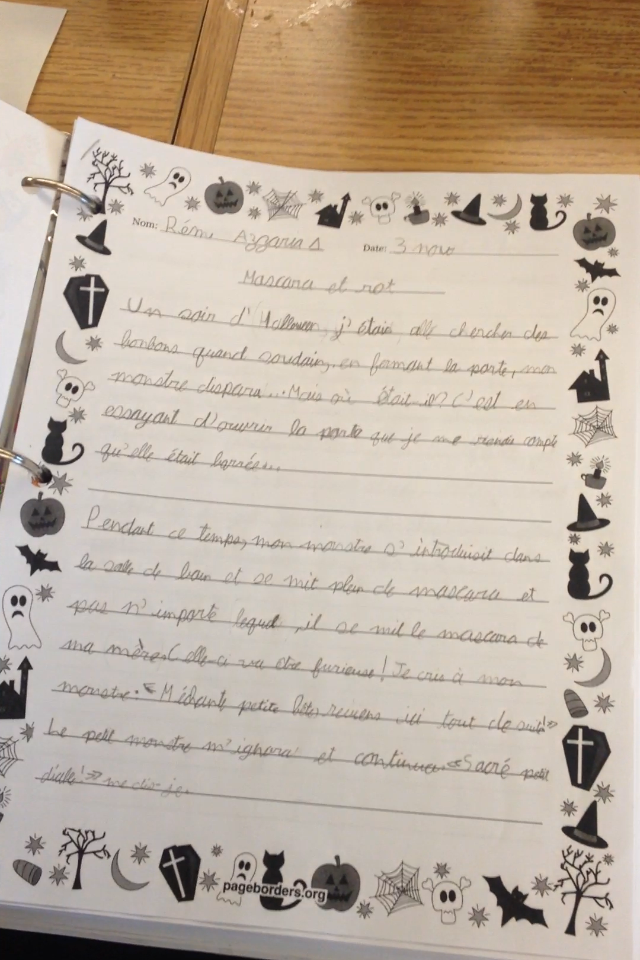 Nom: Rémi Date: 3 nov
Mascara et rot
Un soir d'Halloween, j'étais allé chercher des
bonbons quand soudain, en fermant la porte, mon
monstre dispara... Mais où était-il? C'est en
essayant d'ouvrir la porte que je me rendis compte
qu'elle était barrée...
Pendant ce temps, mon monstre s'introduisit dans
la salle de bain et se mit plein de mascara et
pas n'importe lequel, il se mit le mascara de
ma mère. Celle-ci va être furieuse! Je cris à mon
monstre: «Méchante petite bête, reviens ici tout de suite!»
Le petit monstre m'ignora et continua. «Sacré petit
diable!» me dis-je.
pageborders.org